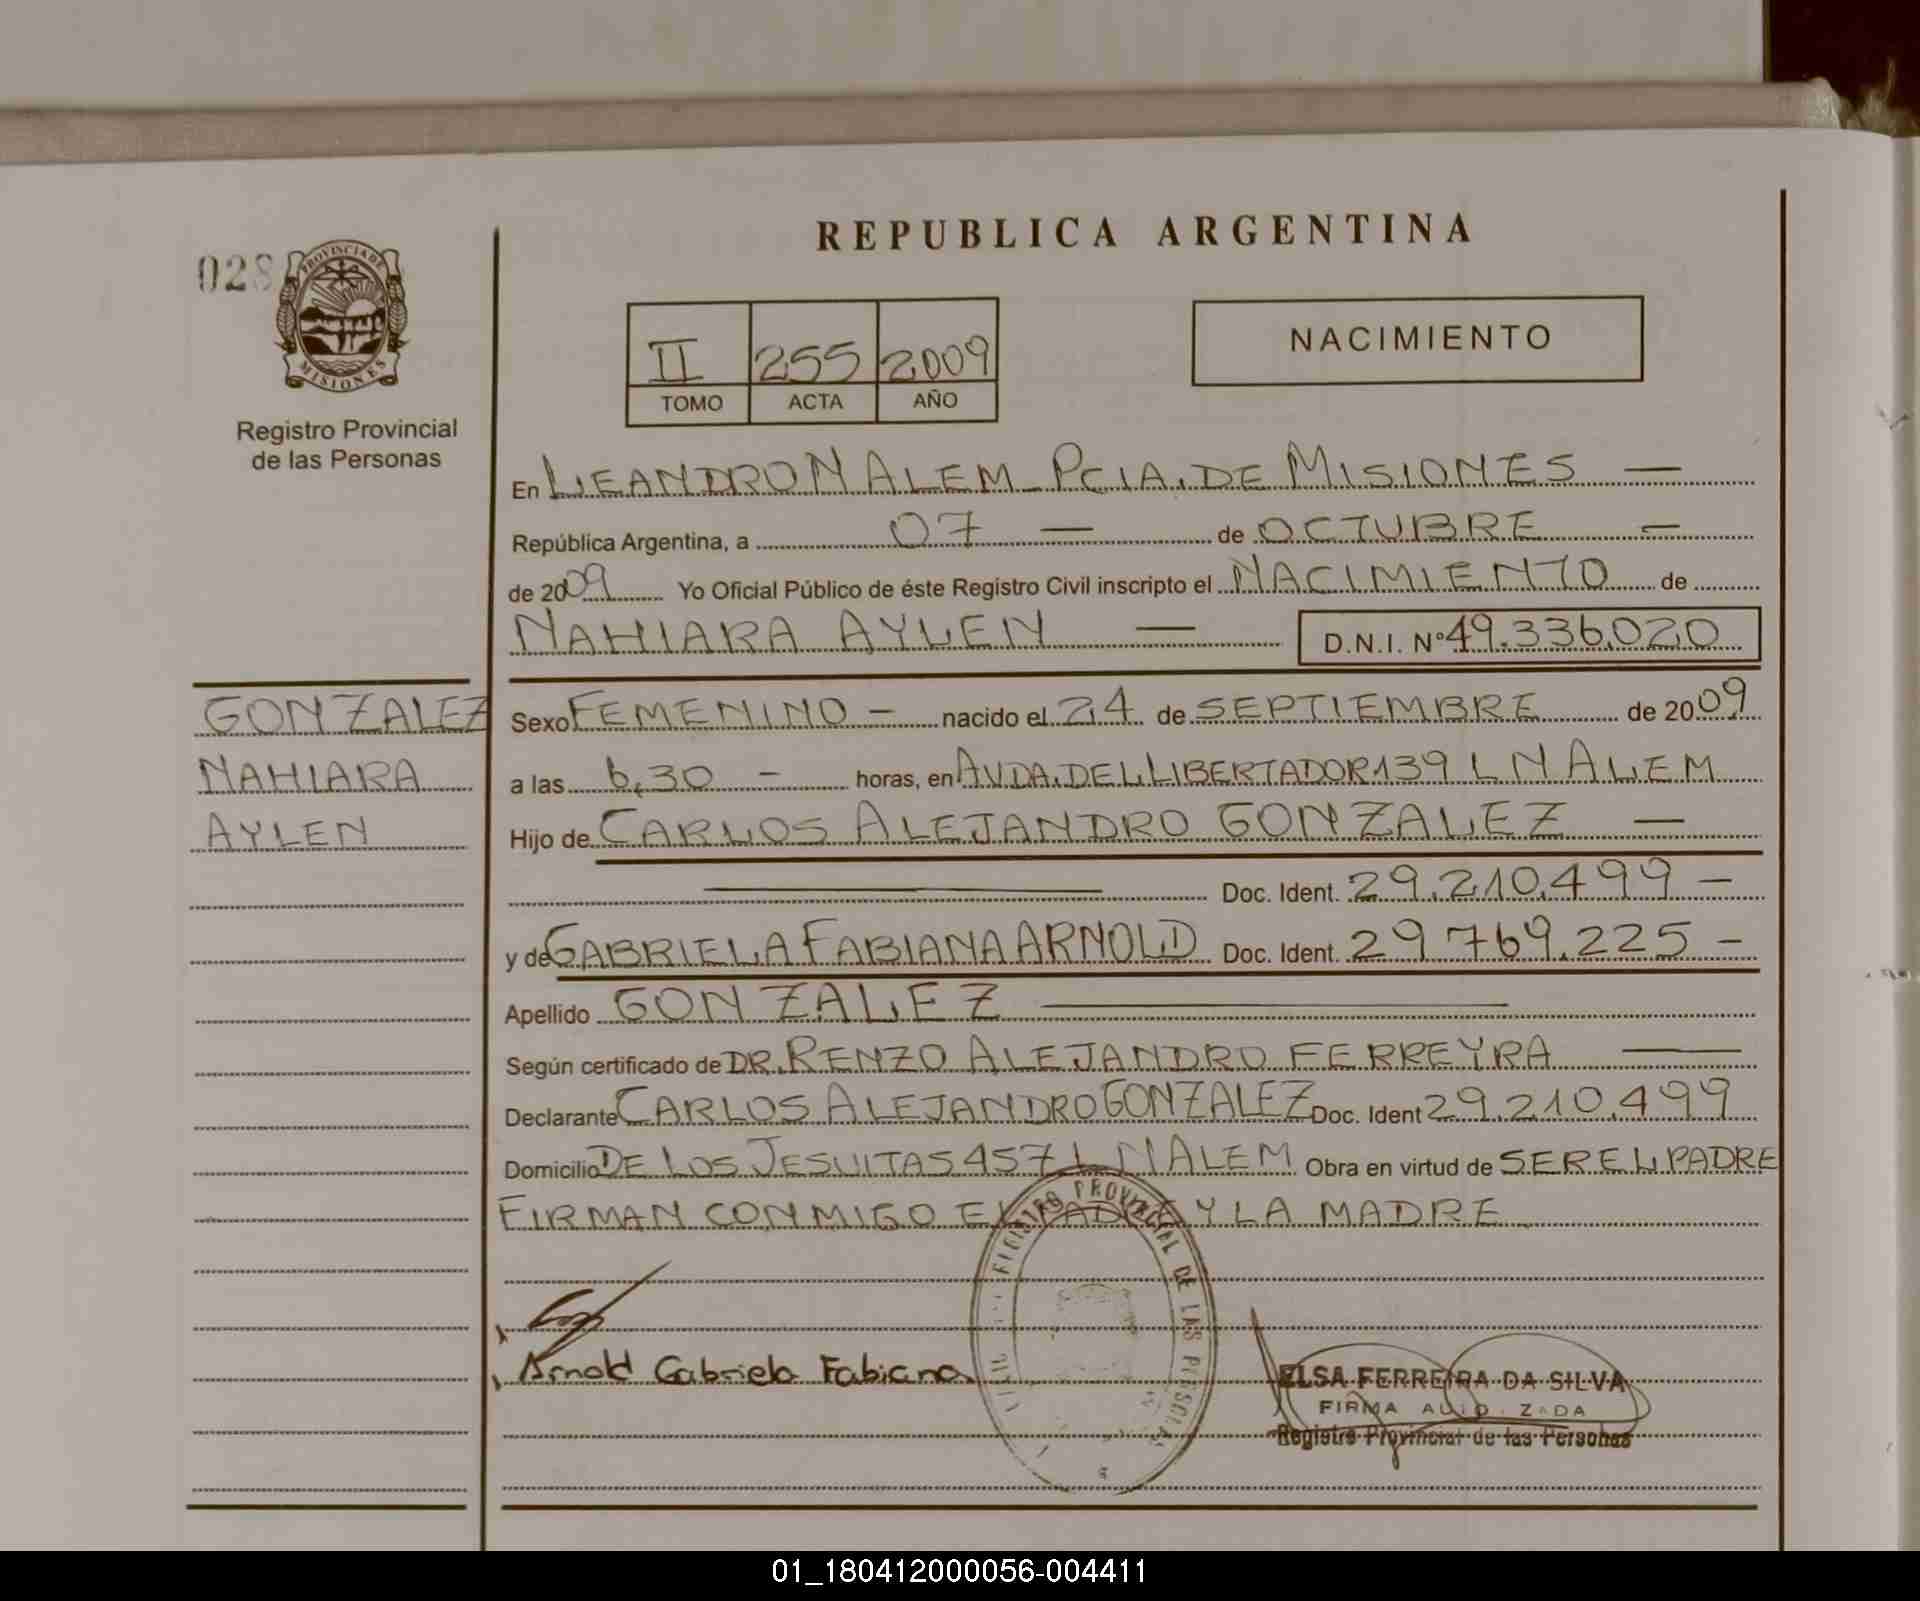 REPUBLICA ARGENTINA
028
PROVINCIA DE
MISIONES
Registro Provincial
de las Personas
II 255 2009
TOMO ACTA AÑO
NACIMIENTO
En LEANDRO N ALEM - PCIA. DE MISIONES —
República Argentina, a 07 — de OCTUBRE —
de 2009 Yo Oficial Público de éste Registro Civil inscripto el NACIMIENTO de
NAHIARA AYLEN — D.N.I. Nº 49.336.020
GONZALEZ
NAHIARA
AYLEN
Sexo FEMENINO - nacido el 24 de SEPTIEMBRE de 2009
a las 6,30 - horas, en AVDA. DEL LIBERTADOR 139 L N ALEM
Hijo de CARLOS ALEJANDRO GONZALEZ —
Doc. Ident. 29.210.499 -
y de GABRIELA FABIANA ARNOLD Doc. Ident. 29.769.225 -
Apellido GONZALEZ
Según certificado de DR. RENZO ALEJANDRO FERREYRA
Declarante CARLOS ALEJANDRO GONZALEZ Doc. Ident 29.210.499
Domicilio DE LOS JESUITAS 457 L N ALEM Obra en virtud de SER EL PADRE
FIRMAN CONMIGO EL PADRE Y LA MADRE
REGISTRO PROVINCIAL DE LAS PERSONAS
Arnold Gabriela Fabiana
ELSA FERREIRA DA SILVA
FIRMA AUTORIZADA
Registro Provincial de las Personas
01_180412000056-004411